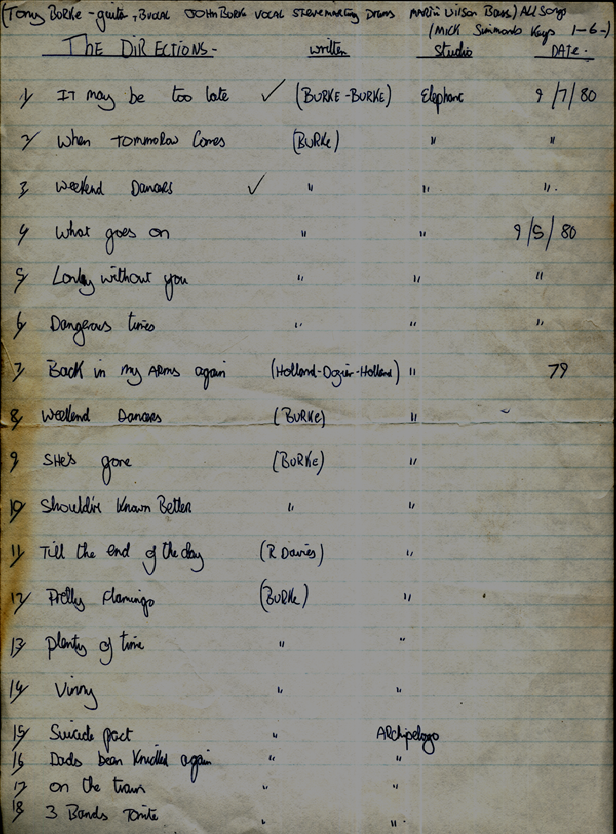 (Tony Burke - guitar, B vocal John Burke vocal Steve Martins Drums Martin Wilson Bass) All Songs
(Mick Simmonds Keys 1-6-)
The Directions - written Studio Date.
1/ It may be too late ✓ (Burke-Burke) Elephant 9/7/80
2/ When Tommorow Comes (Burke) " "
3/ Weekend Dancers ✓ " " "
4/ What goes on " " 9/5/80
5/ Lonley without you " " "
6/ Dangerous times " " "
7/ Back in my Arms again (Holland-Dozier-Holland) " 79
8/ Weekend Dancers (Burke) "
9/ She's gone (Burke) "
10/ Should've Known Better " "
11/ Till the end of the day (R Davies) "
12/ Pretty Flamingo (Burke) "
13/ plenty of time " "
14/ Vinny " "
15/ Suicide pact " Archipelago
16/ Dads been Knicked again " "
17/ on the train " "
18/ 3 Bands Tonite " "